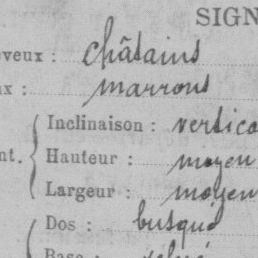 SIGN
eveux : châtains
ux : marrons
Inclinaison : vertica
nt. Hauteur : moyen
Largeur : moyen
Dos : busqué
Base : relevé